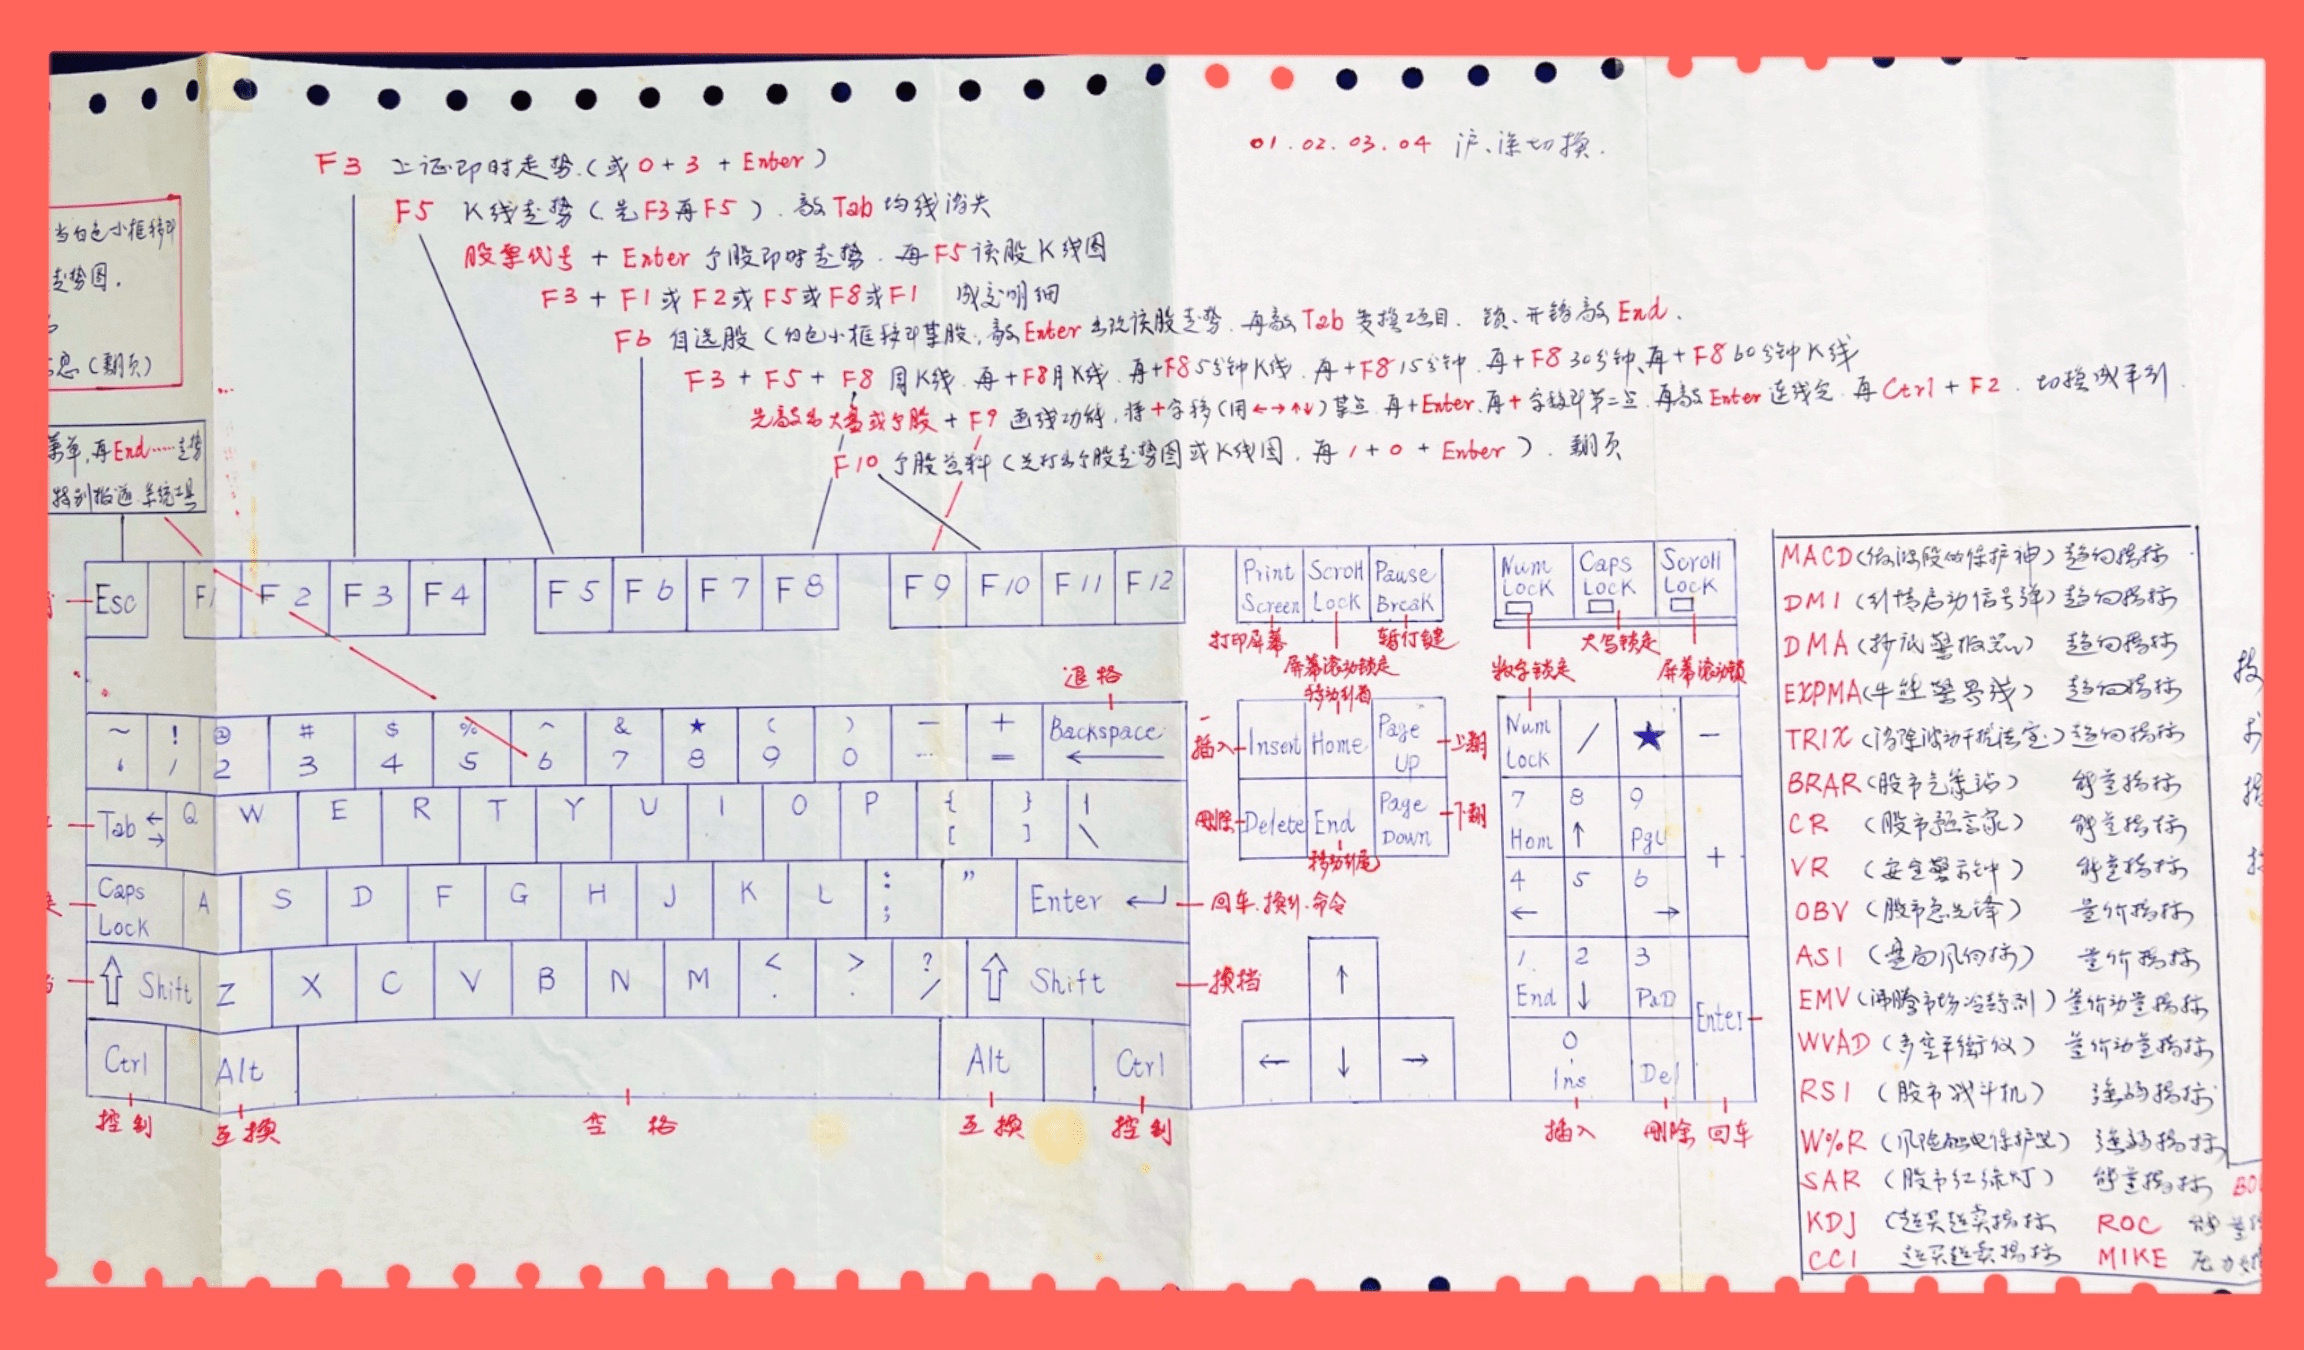 01.02.03.04 沪、深切换.
F3 上证即时走势.(或0+3+Enter)
F5 K线走势(先F3再F5).敲Tab均线消失
股票代号+Enter个股即时走势.再F5该股K线图
F3+F1或F2或F5或F8或F1 成交明细
F6 自选股(白色小框移到某股,敲Enter出现该股走势.再敲Tab变换项目.锁、开锁敲End.
F3+F5+F8周K线.再+F8月K线.再+F85分钟K线.再+F815分钟.再+F830分钟、再+F860分钟K线
先敲出大盘或个股+F9画线功能,将+字移(用←→↑↓)某点.再+Enter、再+字移到第二点.再敲Enter连线完.再Ctrl+F2.切换成平行.
F10 个股资料(先打出个股走势图或K线图.再1+0+Enter).翻页
当白色小框移到
走势图.
息(翻页)
菜单,再End……走势
特别报道.系统工具
Esc F1 F2 F3 F4 F5 F6 F7 F8 F9 F10 F11 F12
Print Screen Scroll Lock Pause Break
Num Lock Caps Lock Scroll Lock
打印屏幕 屏幕滚动锁定 暂停键
数字锁定 大写锁定 屏幕滚动锁
退格
~ ! @ # $ % ^ & ★ ( ) — + Backspace ←
1 2 3 4 5 6 7 8 9 0 =
Tab ←→ Q W E R T Y U I O P { [ } ] | \
Caps Lock A S D F G H J K L : ; " Enter ↵
回车.换行.命令
⇧ Shift Z X C V B N M < > ? / ⇧ Shift
换档
Ctrl Alt Alt Ctrl
控制 互换 空格 互换 控制
移动到首
插入 Insert Home Page UP 上翻
删除 Delete End Page Down 下翻
移动到尾
↑
← ↓ →
Num Lock / ★ −
7 Hom 8 ↑ 9 PgU +
4 ← 5 6 →
1 End 2 ↓ 3 PaD Enter
0 Ins Del
插入 删除 回车
MACD(做滚股的保护神)趋向指标
DMI(行情启动信号弹)趋向指标
DMA(抄底警报器)趋向指标
EXPMA(牛熊警界线)趋向指标
TRIX(消除波动干扰法宝)趋向指标
BRAR(股市气象站)能量指标
CR(股市预言家)能量指标
VR(安全警示钟)能量指标
OBV(股市急先锋)量价指标
ASI(盘面风向标)量价指标
EMV(沸腾市场冷静剂)量价动量指标
WVAD(多空平衡仪)量价动量指标
RSI(股市战斗机)强弱指标
W%R(风险触电保护器)强弱指标
SAR(股市红绿灯)能量指标
KDJ(超买超卖指标 ROC
CCI 超买超卖指标 MIKE
技
术
指
标